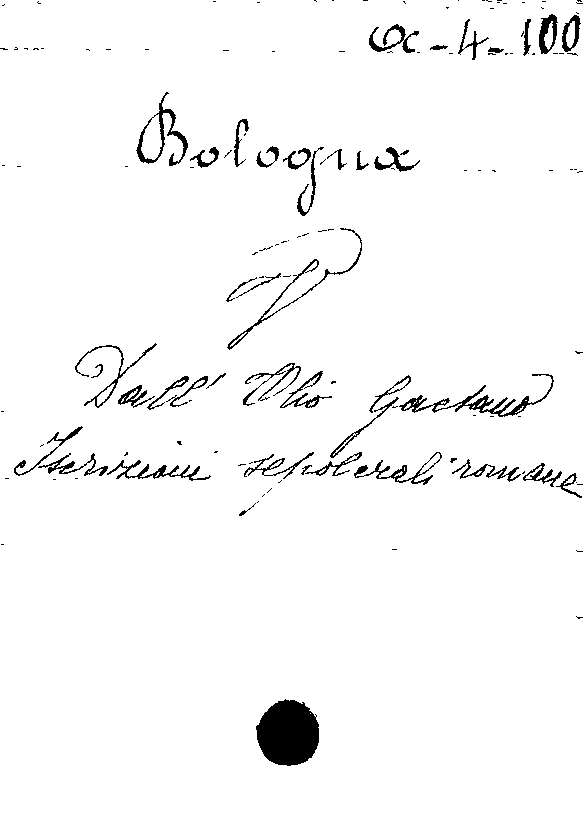 α-4-100
Bologna
V
Dall' Olio Gaetano
Iscrizioni sepolcrali romane